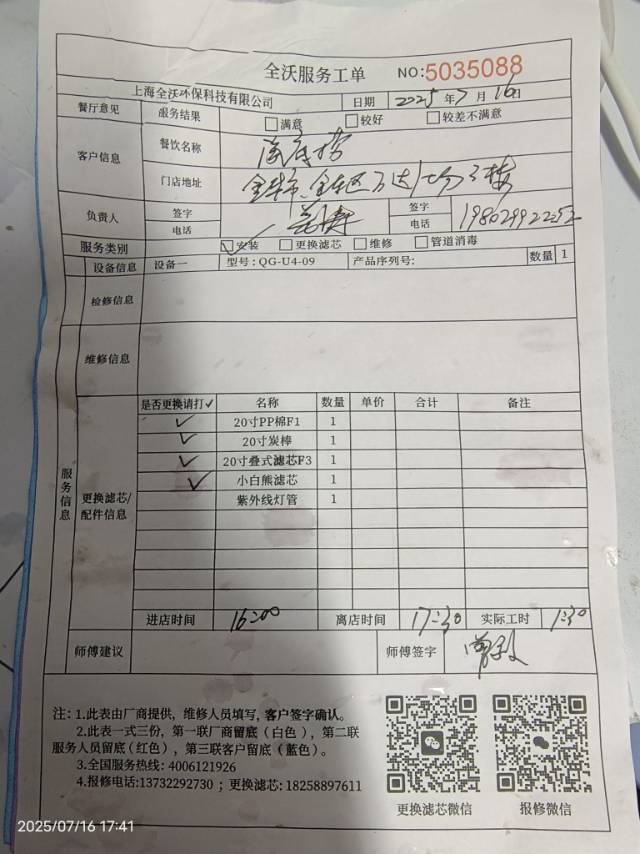 全沃服务工单 NO:5035088
上海全沃环保科技有限公司 日期 2025年7月16日
餐厅意见 服务结果 满意 较好 较差不满意
客户信息 餐饮名称 海底捞
门店地址
负责人 签字 签字
电话 电话
服务类别 ✓安装 更换滤芯 维修 管道消毒
设备信息 设备一 型号: QG-U4-09 产品序列号: 数量 1
检修信息
维修信息
服务信息
更换滤芯/配件信息
是否更换请打✓ 名称 数量 单价 合计 备注
✓ 20寸PP棉F1 1
✓ 20寸炭棒 1
✓ 20寸叠式滤芯F3 1
✓ 小白熊滤芯 1
紫外线灯管 1
进店时间 16:00 离店时间 17:30 实际工时 1:30
师傅建议 师傅签字
注: 1.此表由厂商提供, 维修人员填写, 客户签字确认。
2.此表一式三份, 第一联厂商留底 (白色), 第二联
服务人员留底(红色), 第三联客户留底 (蓝色)。
3.全国服务热线: 4006121926
4.报修电话:13732292730 ; 更换滤芯: 18258897611
更换滤芯微信 报修微信
2025/07/16 17:41